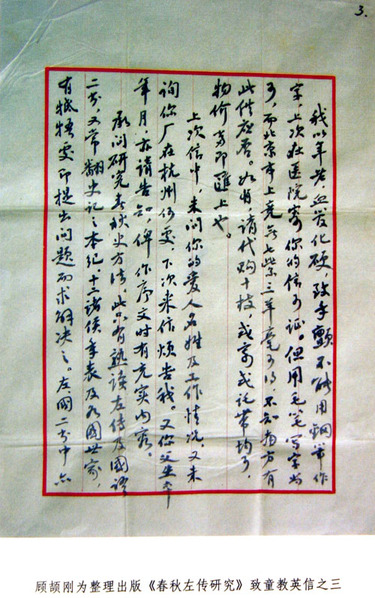 3.
我以年老,血管化硬,致手顫不能用鋼筆作
字,上次在医院寄你的信可证。但用毛笔写字尚
可,而北京市上竟無七紫三羊毫可得,不知杭方有
此件否。如有请代购十枝,或寄或託带均可,
物价即匯上也。
上次信中,未问你的爱人名姓及工作情况,又未
询你厂在杭州何處,下次来信烦告我。又你父生卒
年月,亦请告知,俾作序文时有充实内容。
承问研究春秋史方法,此只有熟读左传及国語
二书,又常翻史记之本纪、十二诸侯年表及各国世家,
有牴牾處即提出问题而求解决之。左国二书中
顾颉刚为整理出版《春秋左传研究》致童教英信之三